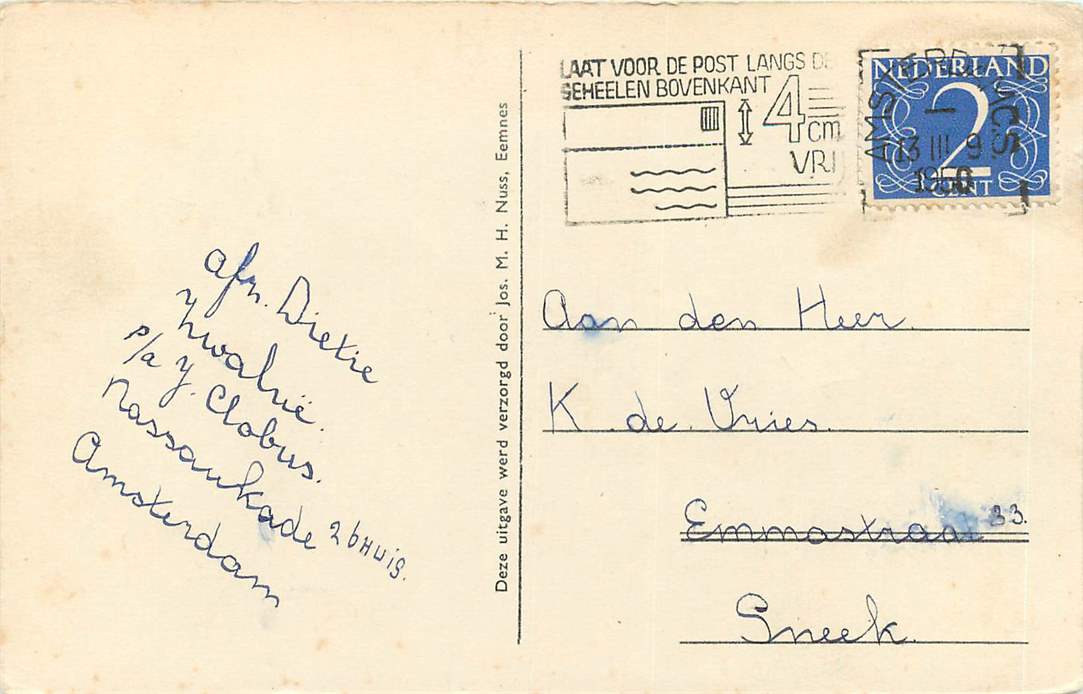 LAAT VOOR DE POST LANGS DE
GEHEELEN BOVENKANT
4 cm
VRI
NEDERLAND
2
CENT
AMSTERDAM C.S.
13 III 9
1950
afz. Dietie
Zwalvië.
p/a Y. Clobus.
Nassaukade 26 Huis.
Amsterdam
Deze uitgave werd verzorgd door Jos. M. H. Nuss, Eemnes
Aan den Heer.
K. de. Vries.
Emmastraat 33.
Sneek.